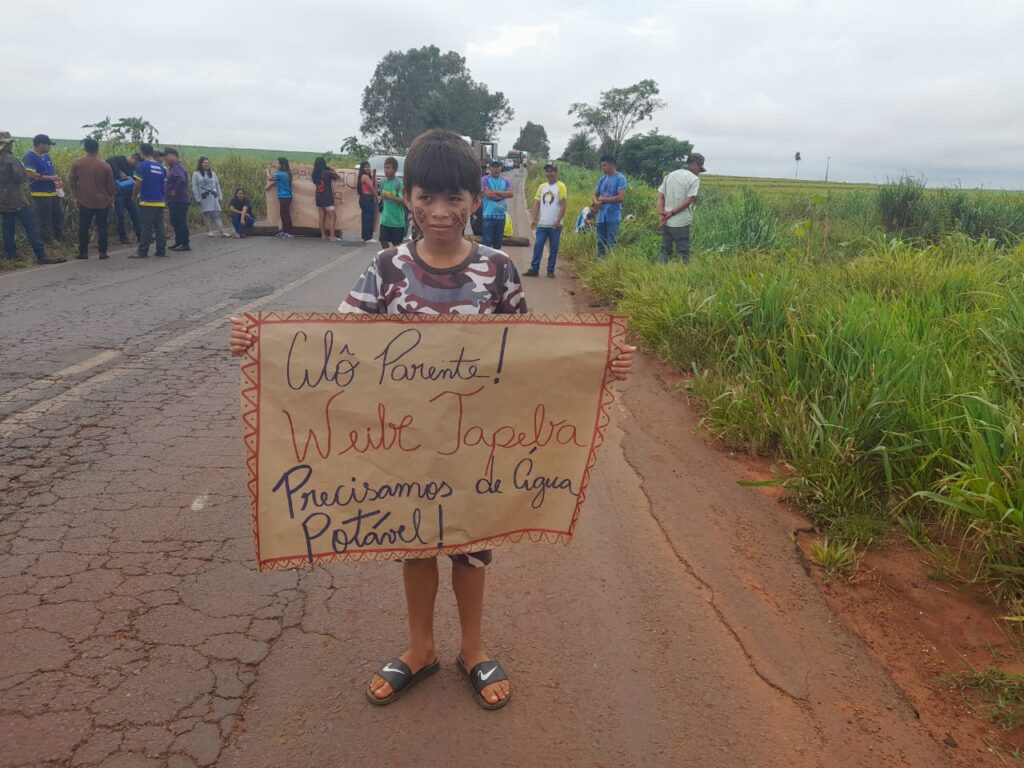 Alô Parente!
Weibe Tapeba
Precisamos de Água
Potável!